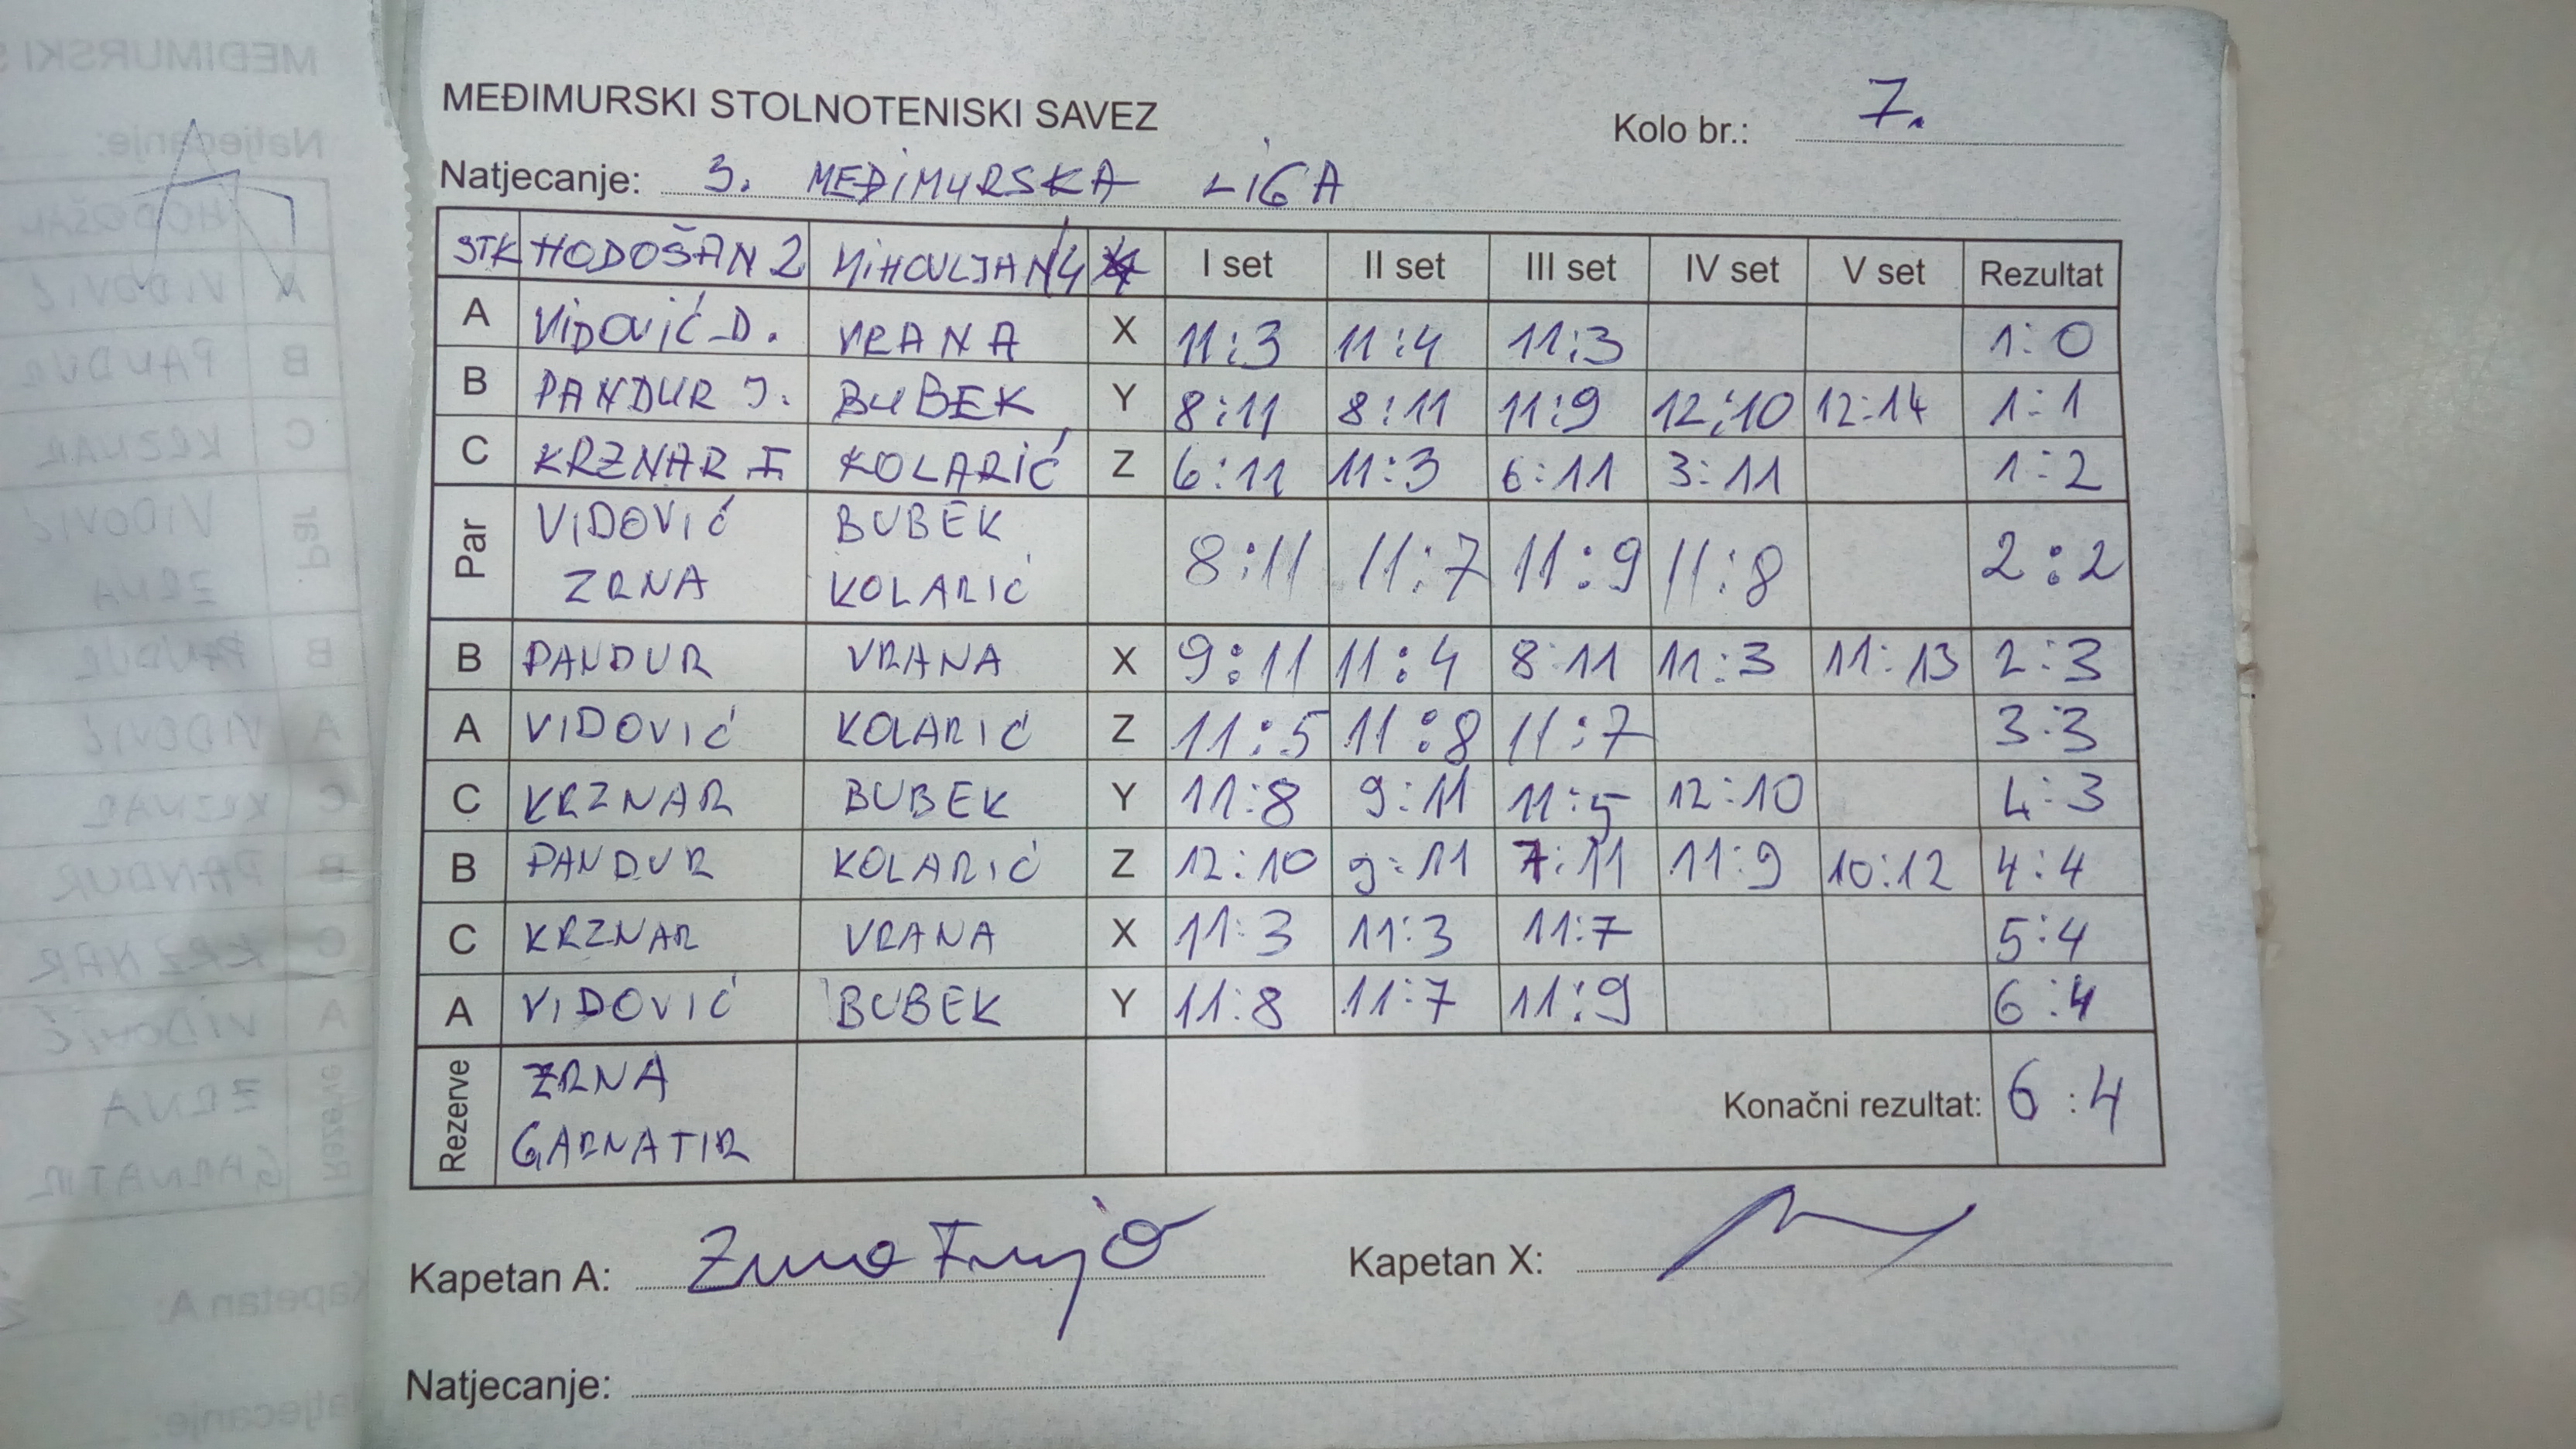 MEĐIMURSKI STOLNOTENISKI SAVEZ
Kolo br.: 7.
Natjecanje: 3. MEĐIMURSKA LIGA
STK HODOŠAN 2 MIHOVLJAN 4 I set II set III set IV set V set Rezultat
A VIDOVIĆ D. VRANA X 11:3 11:4 11:3 1:0
B PANDUR J. BUBEK Y 8:11 8:11 11:9 12:10 12:14 1:1
C KRZNAR F KOLARIĆ Z 6:11 11:3 6:11 3:11 1:2
Par VIDOVIĆ BUBEK 8:11 11:7 11:9 11:8 2:2
ZRNA KOLARIĆ
B PANDUR VRANA X 9:11 11:4 8:11 11:3 11:13 2:3
A VIDOVIĆ KOLARIĆ Z 11:5 11:8 11:7 3:3
C KRZNAR BUBEK Y 11:8 9:11 11:5 12:10 4:3
B PANDUR KOLARIĆ Z 12:10 9:11 7:11 11:9 10:12 4:4
C KRZNAR VRANA X 11:3 11:3 11:7 5:4
A VIDOVIĆ BUBEK Y 11:8 11:7 11:9 6:4
Rezerve ZRNA
GARNATIR
Konačni rezultat: 6:4
Kapetan A:
Kapetan X:
Natjecanje: